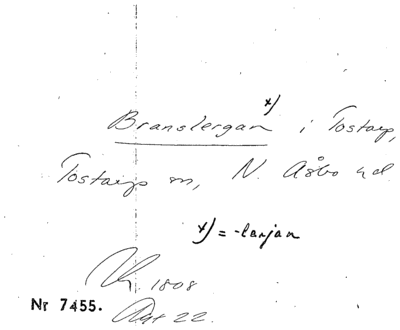 Branslergan x) i Tostarp,
Tostarp sn, N. Åsbo hd
x) = -lanjan
1808
Nr 7455.
Akt 22.